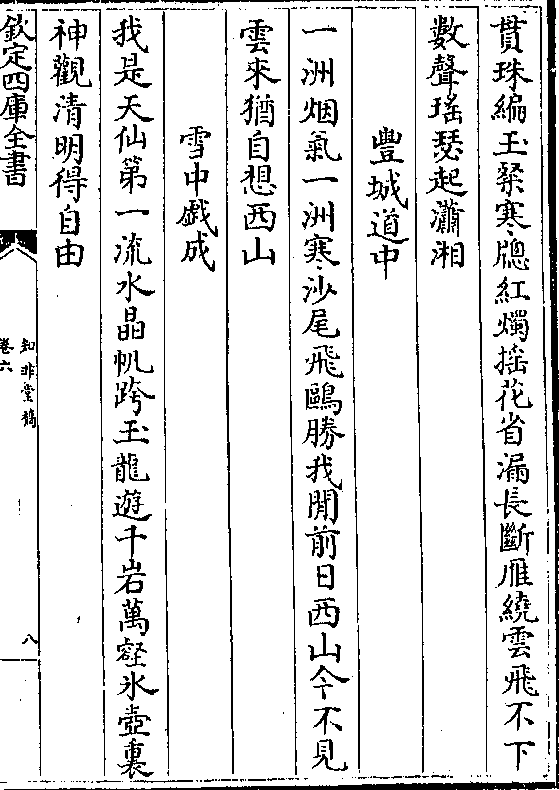 貫珠編玉粲寒牕紅燭揺花省漏長斷雁繞雲飛不下
數聲瑶瑟起瀟湘
豐城道中
一洲烟氣一洲寒沙尾飛鷗勝我閒前日西山今不見
雲來猶自想西山
雪中戯成
我是天仙第一流水晶帆跨玉龍遊千岩萬壑氷壺裏
神觀清明得自由
欽定四庫全書
知非堂稿
卷六
八